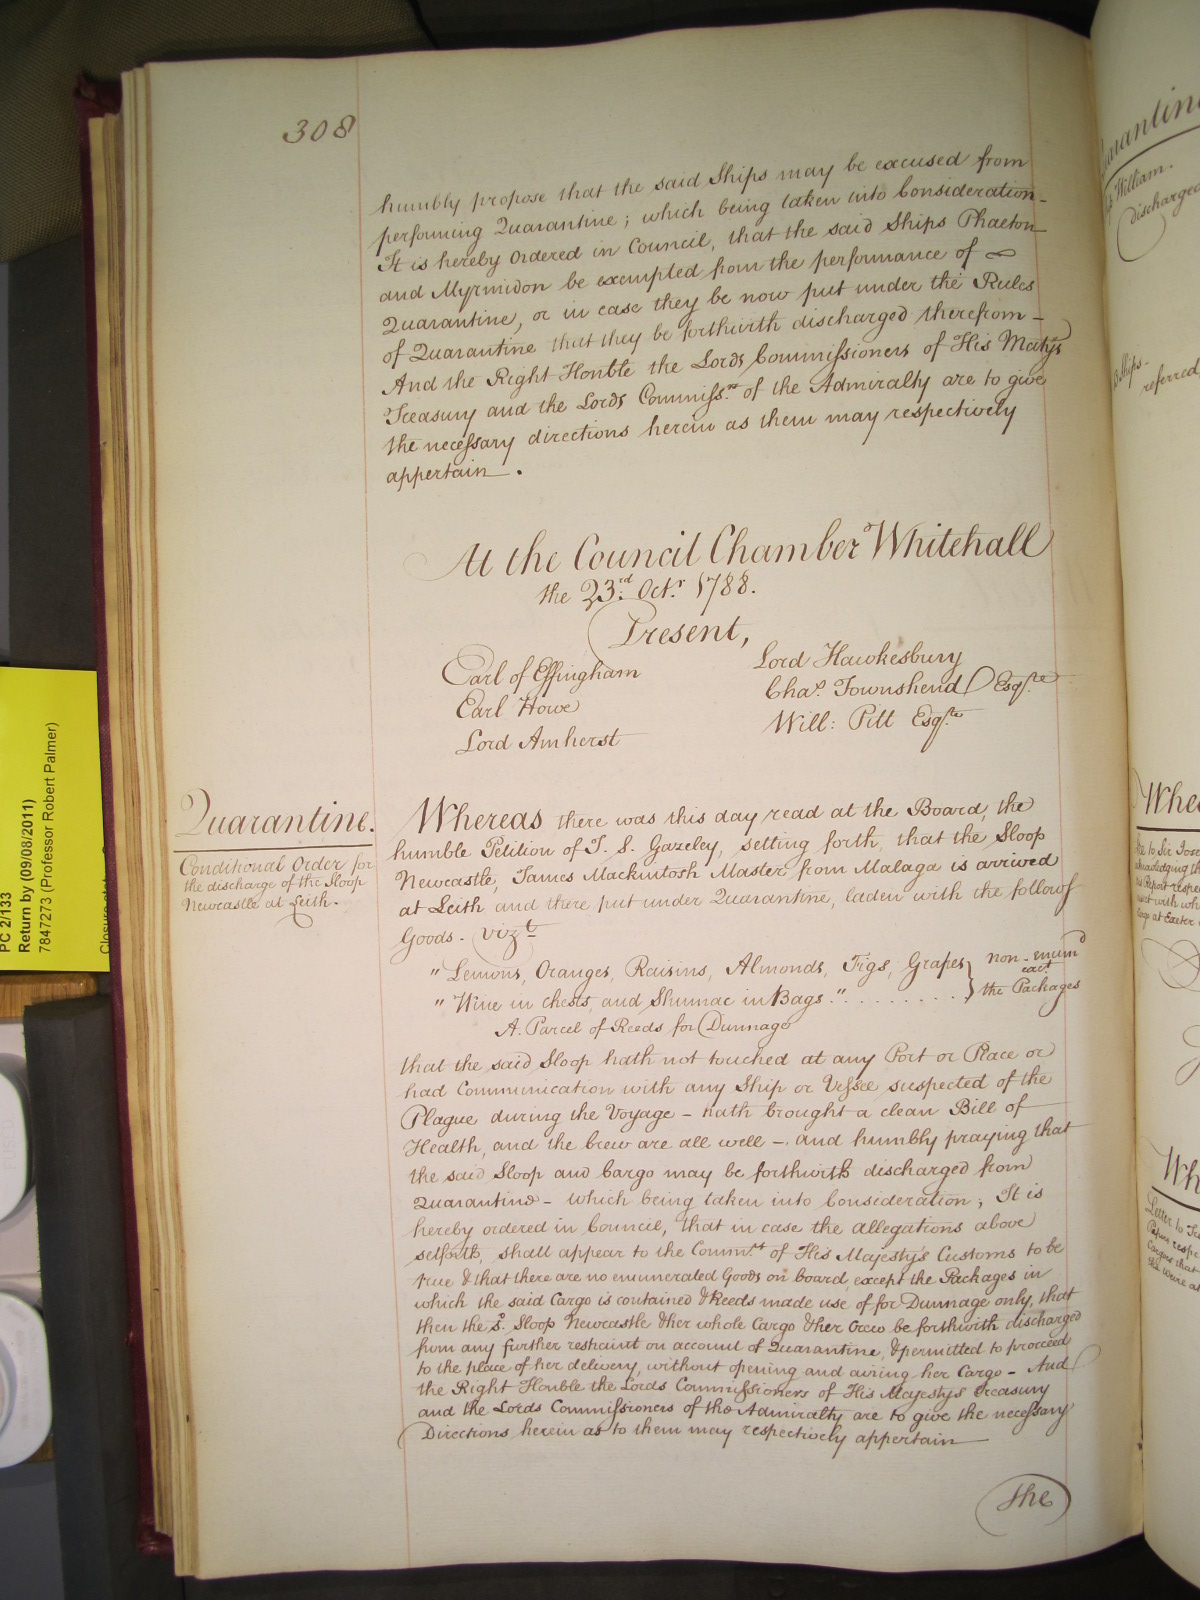 308
humbly propose that the said Ships may be excused from
performing Quarantine; which being taken into Consideration -
It is hereby Ordered in Council, that the said Ships Phaeton
and Myrmidon be exempted from the performance of
Quarantine, or in case they be now put under the Rules
of Quarantine that they be forthwith discharged therefrom -
And the Right Honble the Lords Commissioners of His Matys
Treasury and the Lords Commissrs of the Admiralty are to give
the necessary directions herein as them may respectively
appertain.
At the Council Chamber Whitehall
the 23rd Octr 1788.
Present,
Earl of Effingham
Earl Howe
Lord Amherst
Lord Hawkesbury
Chas Townshend Esqre
Will: Pitt Esqre
Quarantine.
Conditional Order for
the discharge of the Sloop
Newcastle at Leith.
Whereas there was this day read at the Board, the
humble Petition of T. S. Gazeley, setting forth, that the Sloop
Newcastle, James Mackintosh Master from Malaga is arrived
at Leith and there put under Quarantine, laden with the followg
Goods. vizt
" Lemons, Oranges, Raisins, Almonds, Figs, Grapes } non-enumd
" Wine in chests, and Shumac in Bags." . . . . . . . . } exct the Packages
A Parcel of Reeds for Dunnage
that the said Sloop hath not touched at any Port or Place or
had Communication with any Ship or Vessel suspected of the
Plague during the Voyage - hath brought a clean Bill of
Health, and the Crew are all well -. and humbly praying that
the said Sloop and Cargo may be forthwith discharged from
Quarantine - which being taken into Consideration; It is
hereby ordered in Council, that in case the allegations above
setforth, shall appear to the Commrs of His Majesty's Customs to be
true & that there are no enumerated Goods on board, except the Packages in
which the said Cargo is contained & Reeds made use of for Dunnage only, that
then the sd. Sloop Newcastle & her whole Cargo & her Crew be forthwith discharged
from any further restraint on account of Quarantine, & permitted to proceed
to the place of her delivery, without opening and airing her Cargo - And
the Right Honble the Lords Commissioners of His Majestys Treasury
and the Lords Commissioners of the Admiralty are to give the necessary
Directions herein as to them may respectively appertain
the
PC 2/133
Return by (09/08/2011)
7847273 (Professor Robert Palmer)
William.
discharged
Ships -
referred